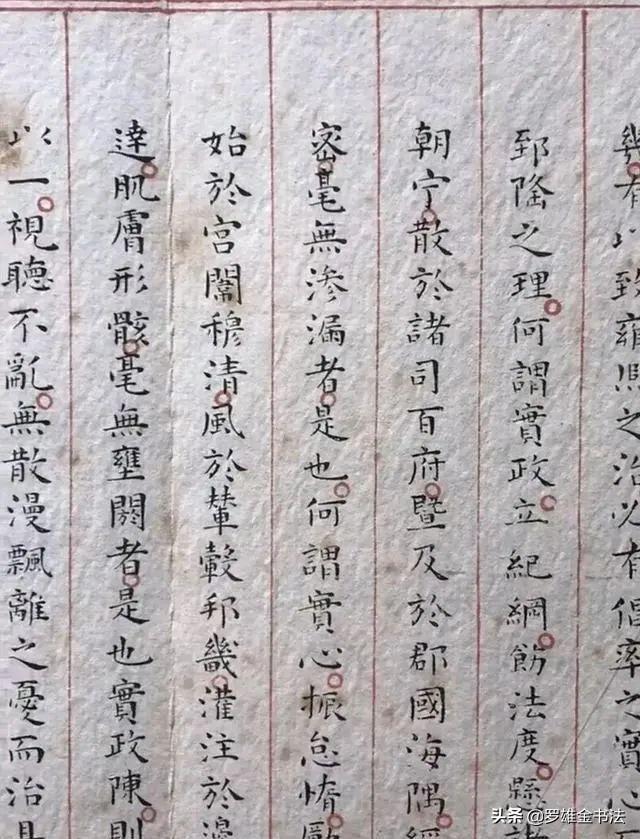 幾有以致雍熙之治必有倡率之實
郅隆之理何謂實政立紀綱飭法度縣
朝宁散於諸司百府暨及於郡國海隅經
密毫無滲漏者是也何謂實心振怠惰勵
始於宮闈穆清風於輦轂邦畿灌注於邊
達肌膚形骸毫無壅閼者是也實政陳則
以一視聽不亂無散漫飄離之憂而治具
头条 @罗雄金书法